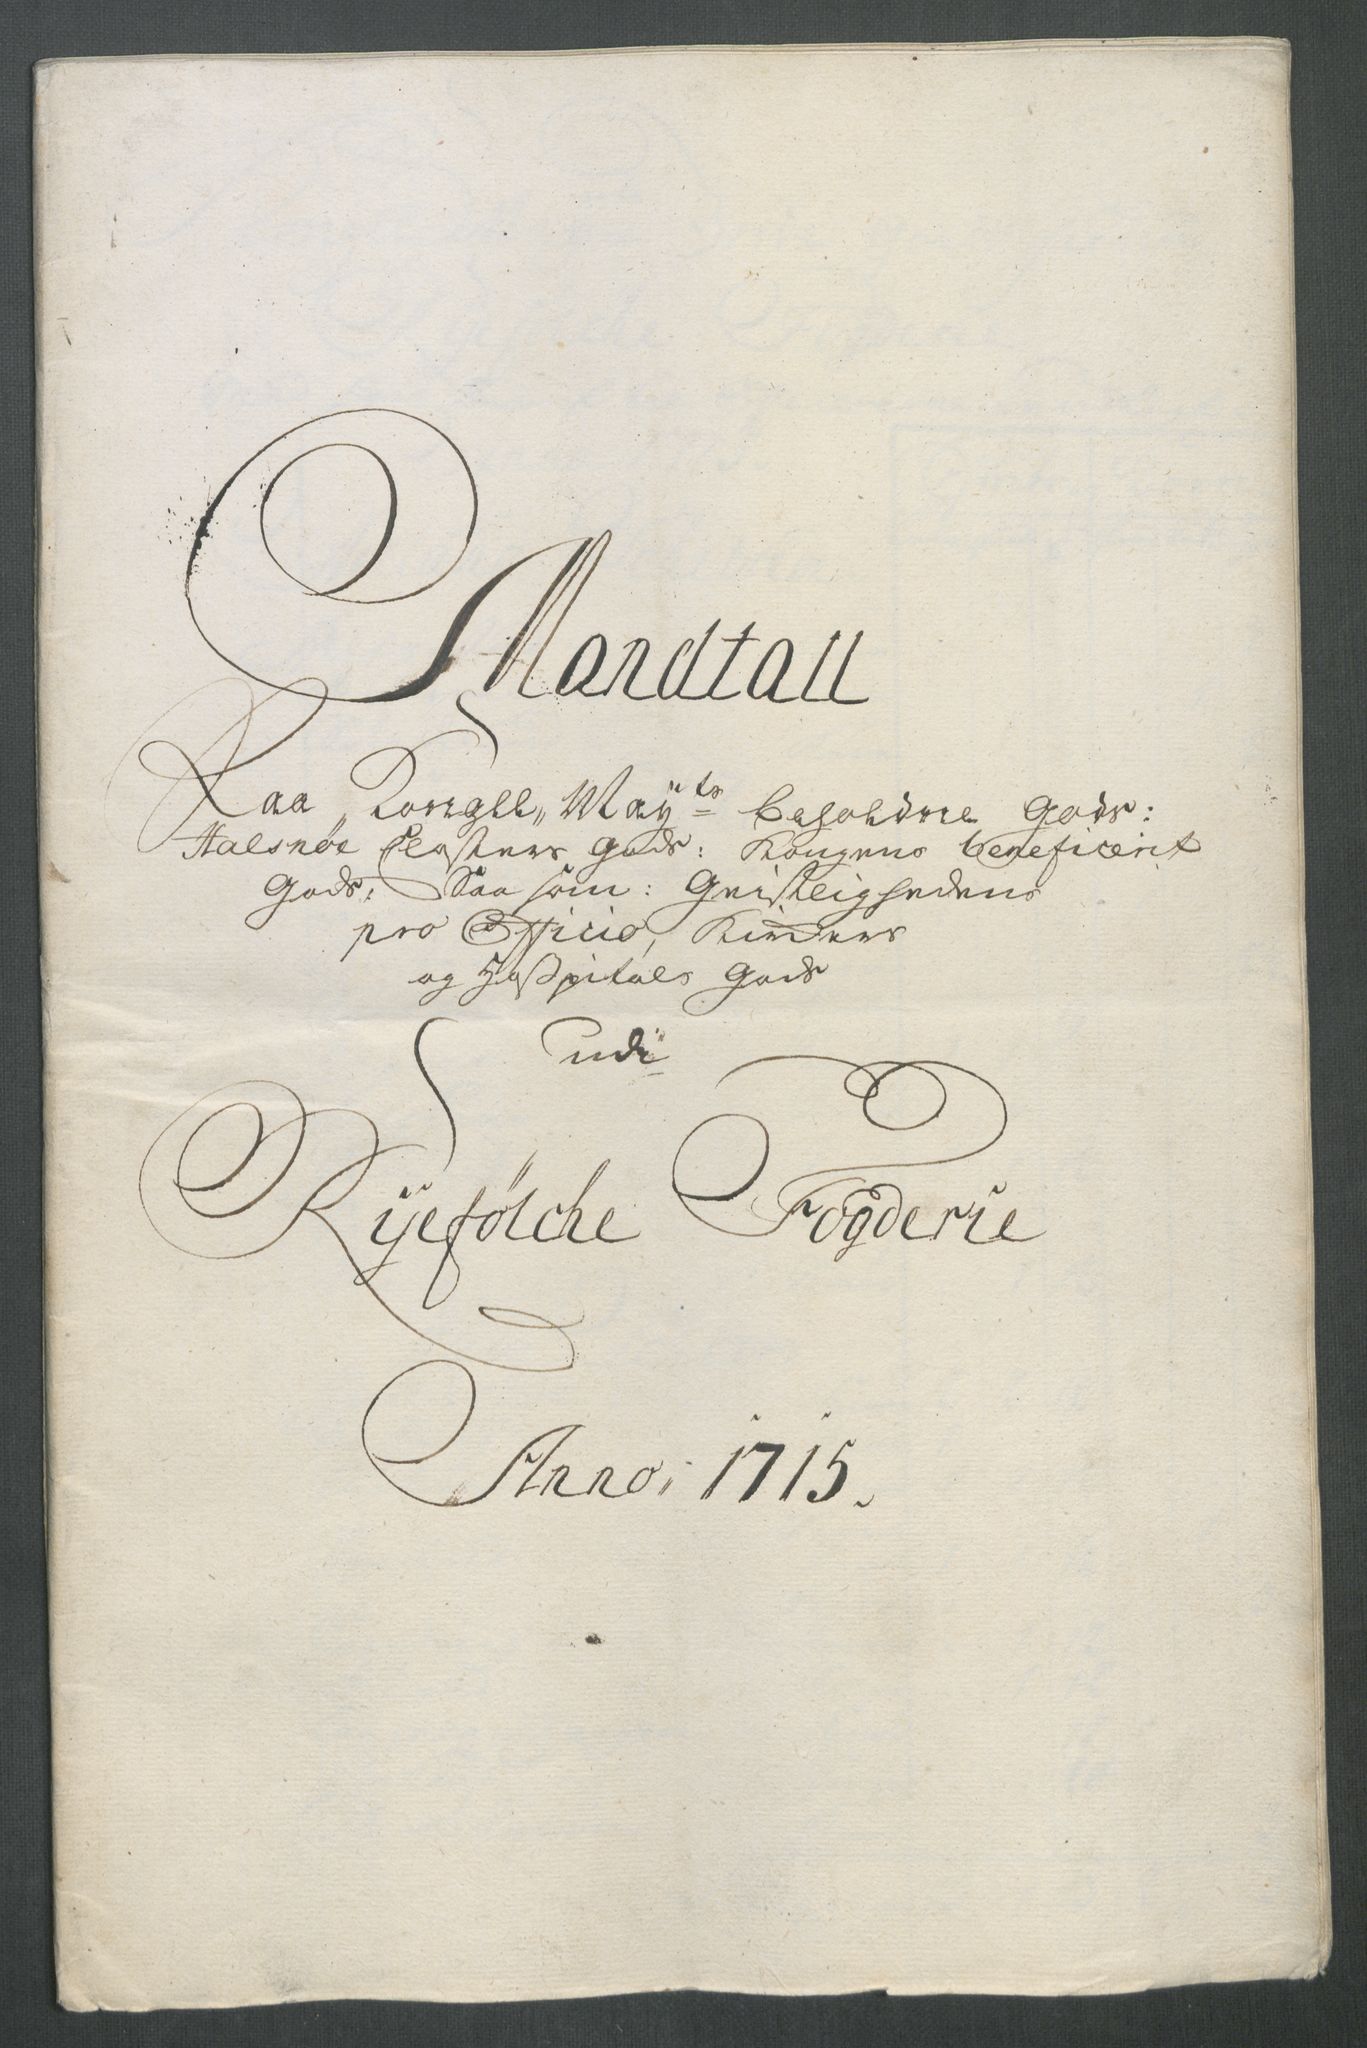 Mandtall
Paa Kongll„ May:ts beholdne Gods:
Halsnøe Closters Gods: Kongens beneficerit
Gods; Saa som: Geistlighedens
pro Officio, Kirckers
og Hospitals Gods
udi
Ryefølche Fogderie
Anno: 1715.